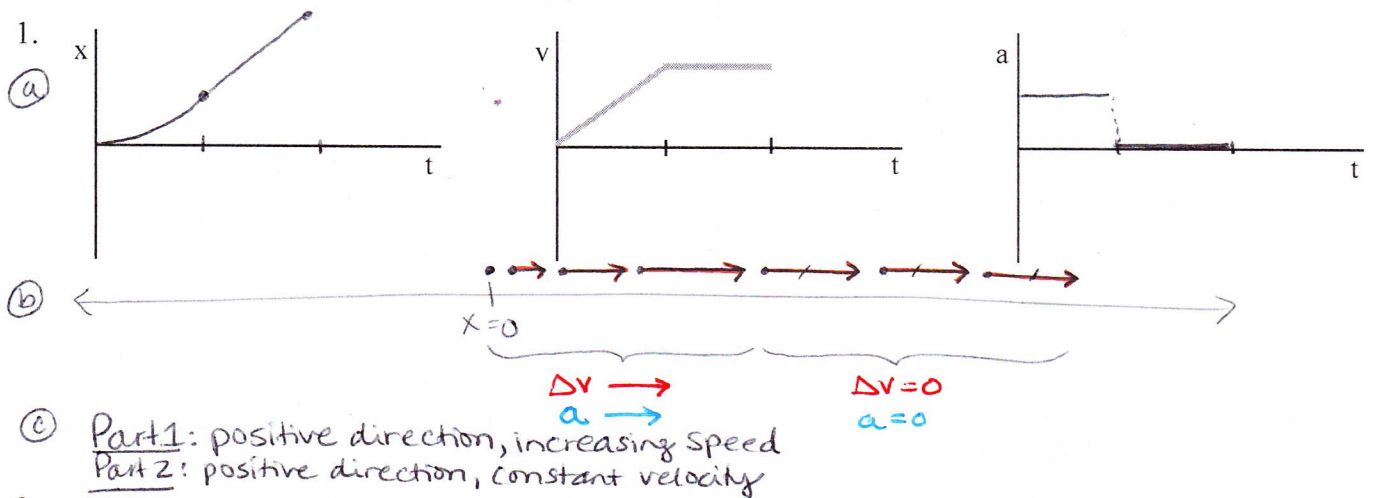 1.
x
t
v
t
a
t
a
b
x=0
Δv → Δv=0
a → a=0
c Part 1: positive direction, increasing speed
Part 2: positive direction, constant velocity